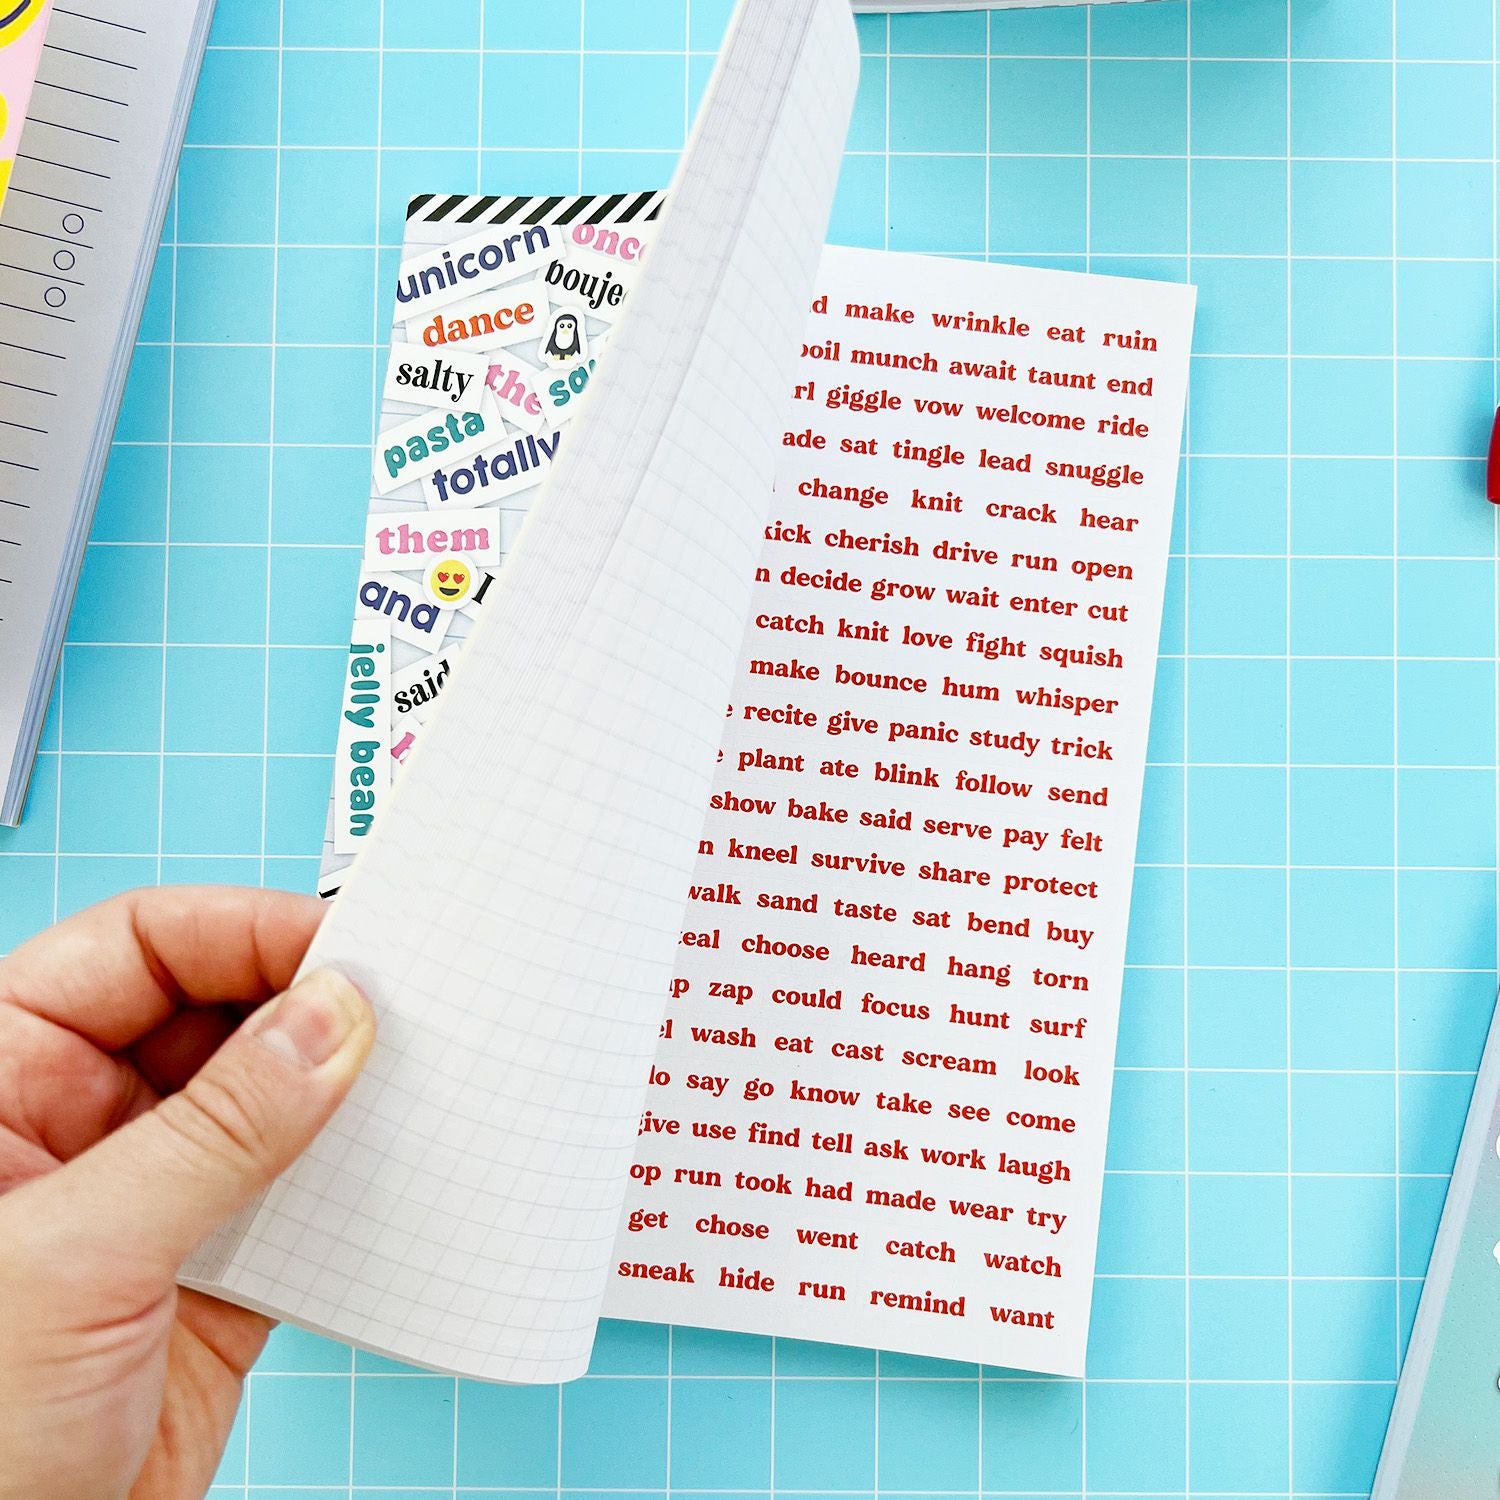 unicorn
dance
salty
the
pasta
totally
them
and
I
said
jelly bean
make wrinkle eat ruin
munch await taunt end
giggle vow welcome ride
sat tingle lead snuggle
change knit crack hear
kick cherish drive run open
decide grow wait enter cut
catch knit love fight squish
make bounce hum whisper
recite give panic study trick
plant ate blink follow send
show bake said serve pay felt
kneel survive share protect
walk sand taste sat bend buy
choose heard hang torn
zap could focus hunt surf
wash eat cast scream look
say go know take see come
give use find tell ask work laugh
run took had made wear try
get chose went catch watch
sneak hide run remind want